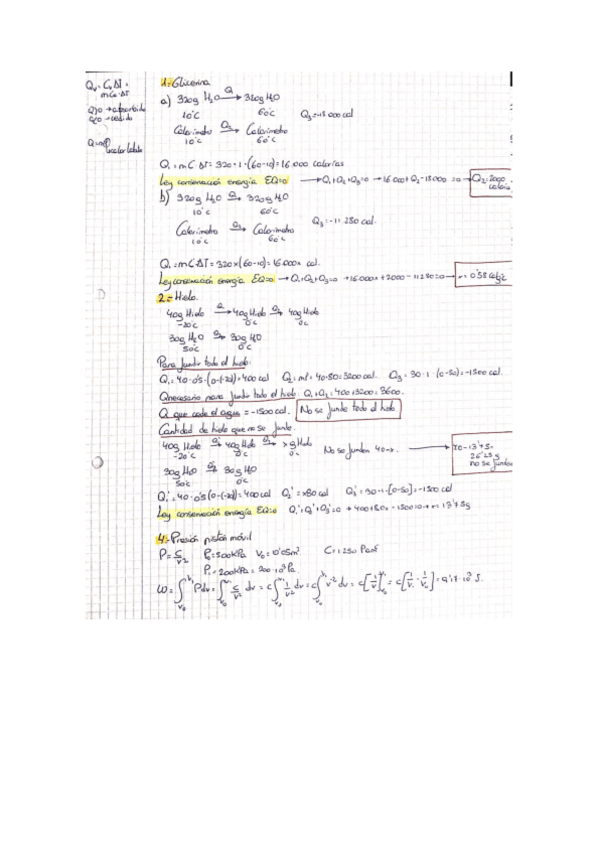 Qv = Cv ΔT =
m Ce · ΔT
Q>0 → absorbido
Q<0 → cedido
1.- Glicerina
a) 320g H₂O Q→ 320g H₂O
10°C 60°C Q₃ = -18000 cal
Calorímetro Q₂→ Calorímetro
10°C 60°C
Q₁ = m C ΔT = 320·1·(60-10) = 16.000 calorías
Ley conservación energía ΣQ=0 → Q₁+Q₂+Q₃=0 → 16.000+Q₂-18.000=0 → Q₂=2000
b) 320g H₂O → 320g H₂O
10°C 60°C Q₃ = -11.280 cal.
Calorímetro → Calorímetro
10°C 60°C
Q₁ = m C ΔT = 320x(60-10) = 16.000x cal.
Ley conservación energía ΣQ=0 → Q₁+Q₂+Q₃=0 → 16.000x+2000-11280=0 → x=0'58
2.- Hielo.
40g Hielo Q₁→ 40g Hielo Q₂→ 40g Hielo
-20°C 0°C 0°C
30g H₂O Q₃→ 30g H₂O
50°C 0°C
Para fundir todo el hielo:
Q₁ = 40·0'5·(0-(-20)) = 400 cal Q₂ = ml = 40·80 = 3200 cal. Q₃ = 30·1·(0-50) = -1500 cal.
Qnecesario para fundir todo el hielo: Q₁+Q₂ = 400+3200 = 3600.
Q que cede el agua = -1500 cal. No se funde todo el hielo
Cantidad de hielo que no se funde.
40g Hielo → 40g Hielo → xg Hielo No se funden 40-x. → 40-13'75=
-20°C 0°C 0°C 26'25g
no se funden
30g H₂O → 30g H₂O
50°C 0°C
Q₁' = 40·0'5(0-(-20)) = 400 cal Q₂' = x80 cal Q₃' = 30·1·[0-50] = -1500 cal
Ley conservación energía ΣQ=0 Q₁'+Q₂'+Q₃'=0 → 400+80x-1500=0 → x=13'75g
4.- Presión pistón móvil
P = C/V² P₀ = 500kPa V₀ = 0'05m³ C = 1250 Pa m⁶
P₁ = 200kPa = 200·10³ Pa.
W = ∫ P dv = ∫ C/V² dv = C ∫ 1/V² dv = C ∫ V⁻² dv = C [1/V] = C [1/V₁ - 1/V₀] = 9'19·10³ J.